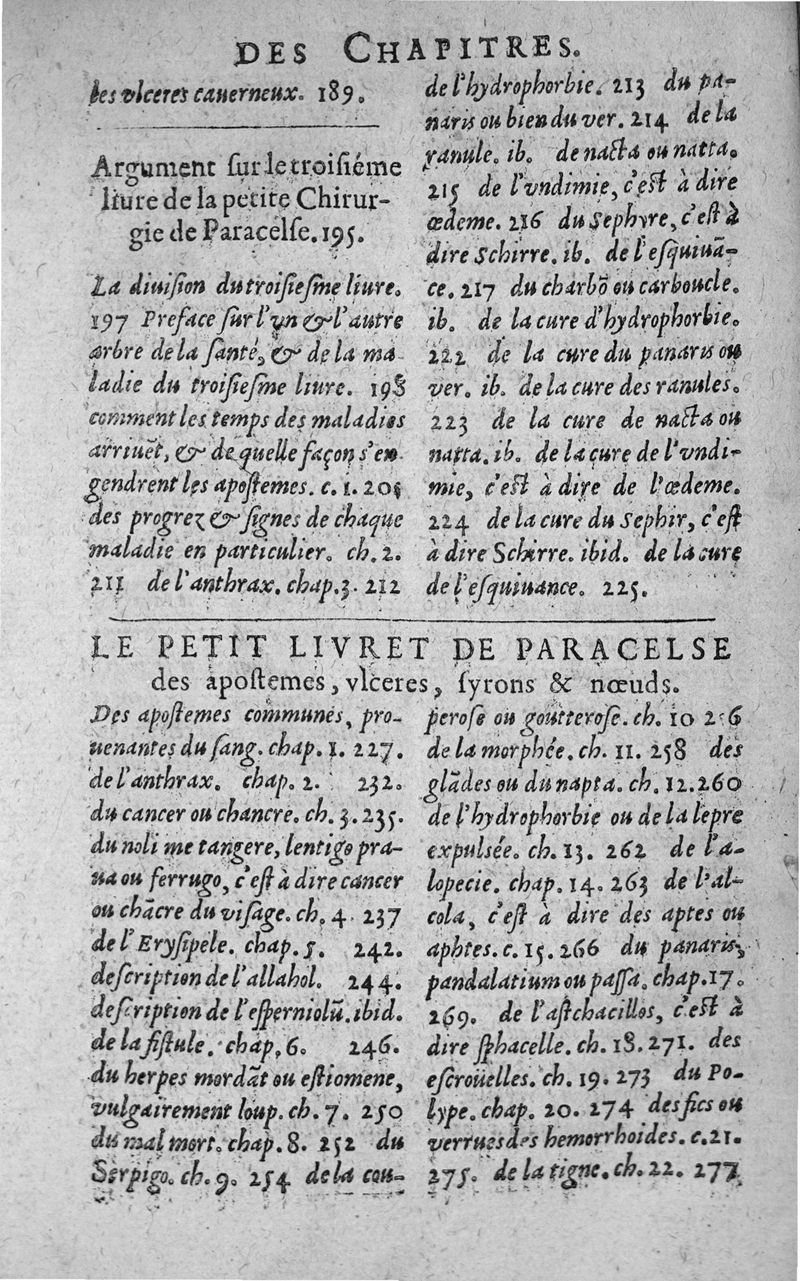 DES CHAPITRES.
les vlceres cauerneux. 189.
Argument ſur le troiſiéme
liure de la petite Chirur-
gie de Paracelſe. 195.
La diuiſion du troiſieſme liure.
197 Preface ſur l'vn & l'autre
arbre de la ſanté, & de la ma-
ladie du troiſieſme liure. 198
comment les temps des maladies
arriuēt, & de quelle façon s'en-
gendrent les apoſtemes. c. 1. 205
des progrez & ſignes de chaque
maladie en particulier. ch. 2.
211 de l'anthrax. chap. 3. 212
de l'hydrophorbie. 213 du pa-
naris ou bien du ver. 214 de la
ranule. ib. de nacta ou natta.
215 de l'vndimie, c'eſt à dire
œdeme. 216 du Sephyre, c'eſt à
dire Schirre. ib. de l'eſquiuā-
ce. 217 du charbō ou carboucle.
ib. de la cure d'hydrophorbie.
222 de la cure du panaris ou
ver. ib. de la cure des ranules.
223 de la cure de nacta ou
natta. ib. de la cure de l'vndi-
mie, c'eſt à dire de l'œdeme.
224 de la cure du Sephir, c'eſt
à dire Schirre. ibid. de la cure
de l'eſquiuance. 225.
LE PETIT LIVRET DE PARACELSE
des apoſtemes, vlceres, ſyrons & nœuds.
Des apoſtemes communes, pro-
uenantes du ſang. chap. 1. 227.
de l'anthrax. chap. 2. 232.
du cancer ou chancre. ch. 3. 235.
du noli me tangere, lentigo pra-
ua ou ferrugo, c'eſt à dire cancer
ou chācre du viſage. ch. 4. 237
de l'Eryſipele. chap. 5. 242.
deſcription de l'allahol. 244.
deſcription de l'eſperniolū. ibid.
de la fiſtule. chap. 6. 246.
du herpes mordāt ou eſtiomene,
vulgairement loup. ch. 7. 250
du mal mort. chap. 8. 252 du
Serpigo. ch. 9. 254 de la cou-
peroſe ou goutteroſe. ch. 10 256
de la morphée. ch. 11. 258 des
glādes ou du napta. ch. 12. 260
de l'hydrophorbie ou de la lepre
expulſée. ch. 13. 262 de l'a-
lopecie. chap. 14. 263 de l'al-
cola, c'eſt à dire des aptes ou
aphtes. c. 15. 266 du panaris,
pandalatium ou paſſa. chap. 17.
269. de l'aſtchacillos, c'eſt à
dire ſphacelle. ch. 18. 271. des
eſcroüelles. ch. 19. 273 du Po-
lype. chap. 20. 274 des fics ou
verrues des hemorrhoides. c. 21.
275. de la tigne. ch. 22. 277